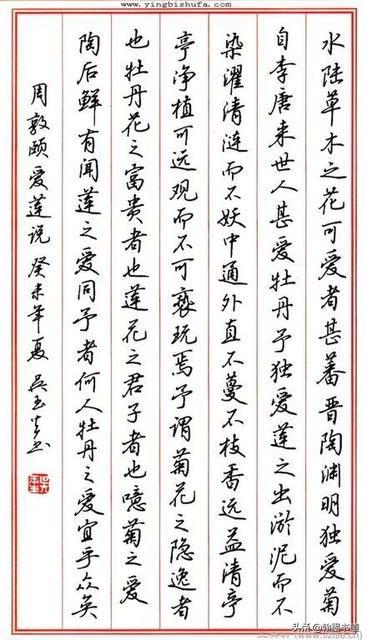 www.yingbishufa.com
水陆草木之花可爱者甚蕃晋陶渊明独爱菊
自李唐来世人甚爱牡丹予独爱莲之出淤泥而不
染濯清涟而不妖中通外直不蔓不枝香远益清亭
亭净植可远观而不可亵玩焉予谓菊花之隐逸者
也牡丹花之富贵者也莲花之君子者也噫菊之爱
陶后鲜有闻莲之爱同予者何人牡丹之爱宜乎众矣
周敦颐爱莲说 癸未年夏 吴玉生书
头条 @翰墨书